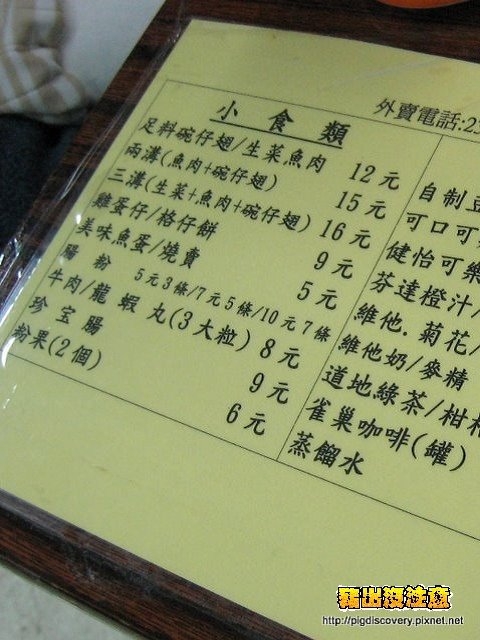 外賣電話:2
小食類
足料碗仔翅/生菜魚肉 12元
兩溝(魚肉+碗仔翅) 15元
三溝(生菜+魚肉+碗仔翅) 16元
雞蛋仔/格仔餅 9元
美味魚蛋/燒賣 5元
腸粉 5元3條/7元5條/10元7條
牛肉/龍蝦丸(3大粒) 8元
珍宝腸 9元
粉果(2個) 6元
自制豆
可口可
健怡可樂
芬達橙汁/
維他.菊花/
維他奶/麥精
道地綠茶/柑桔
雀巢咖啡(罐)
蒸餾水
豬出沒注意
http://pigdiscovery.pixnet.net